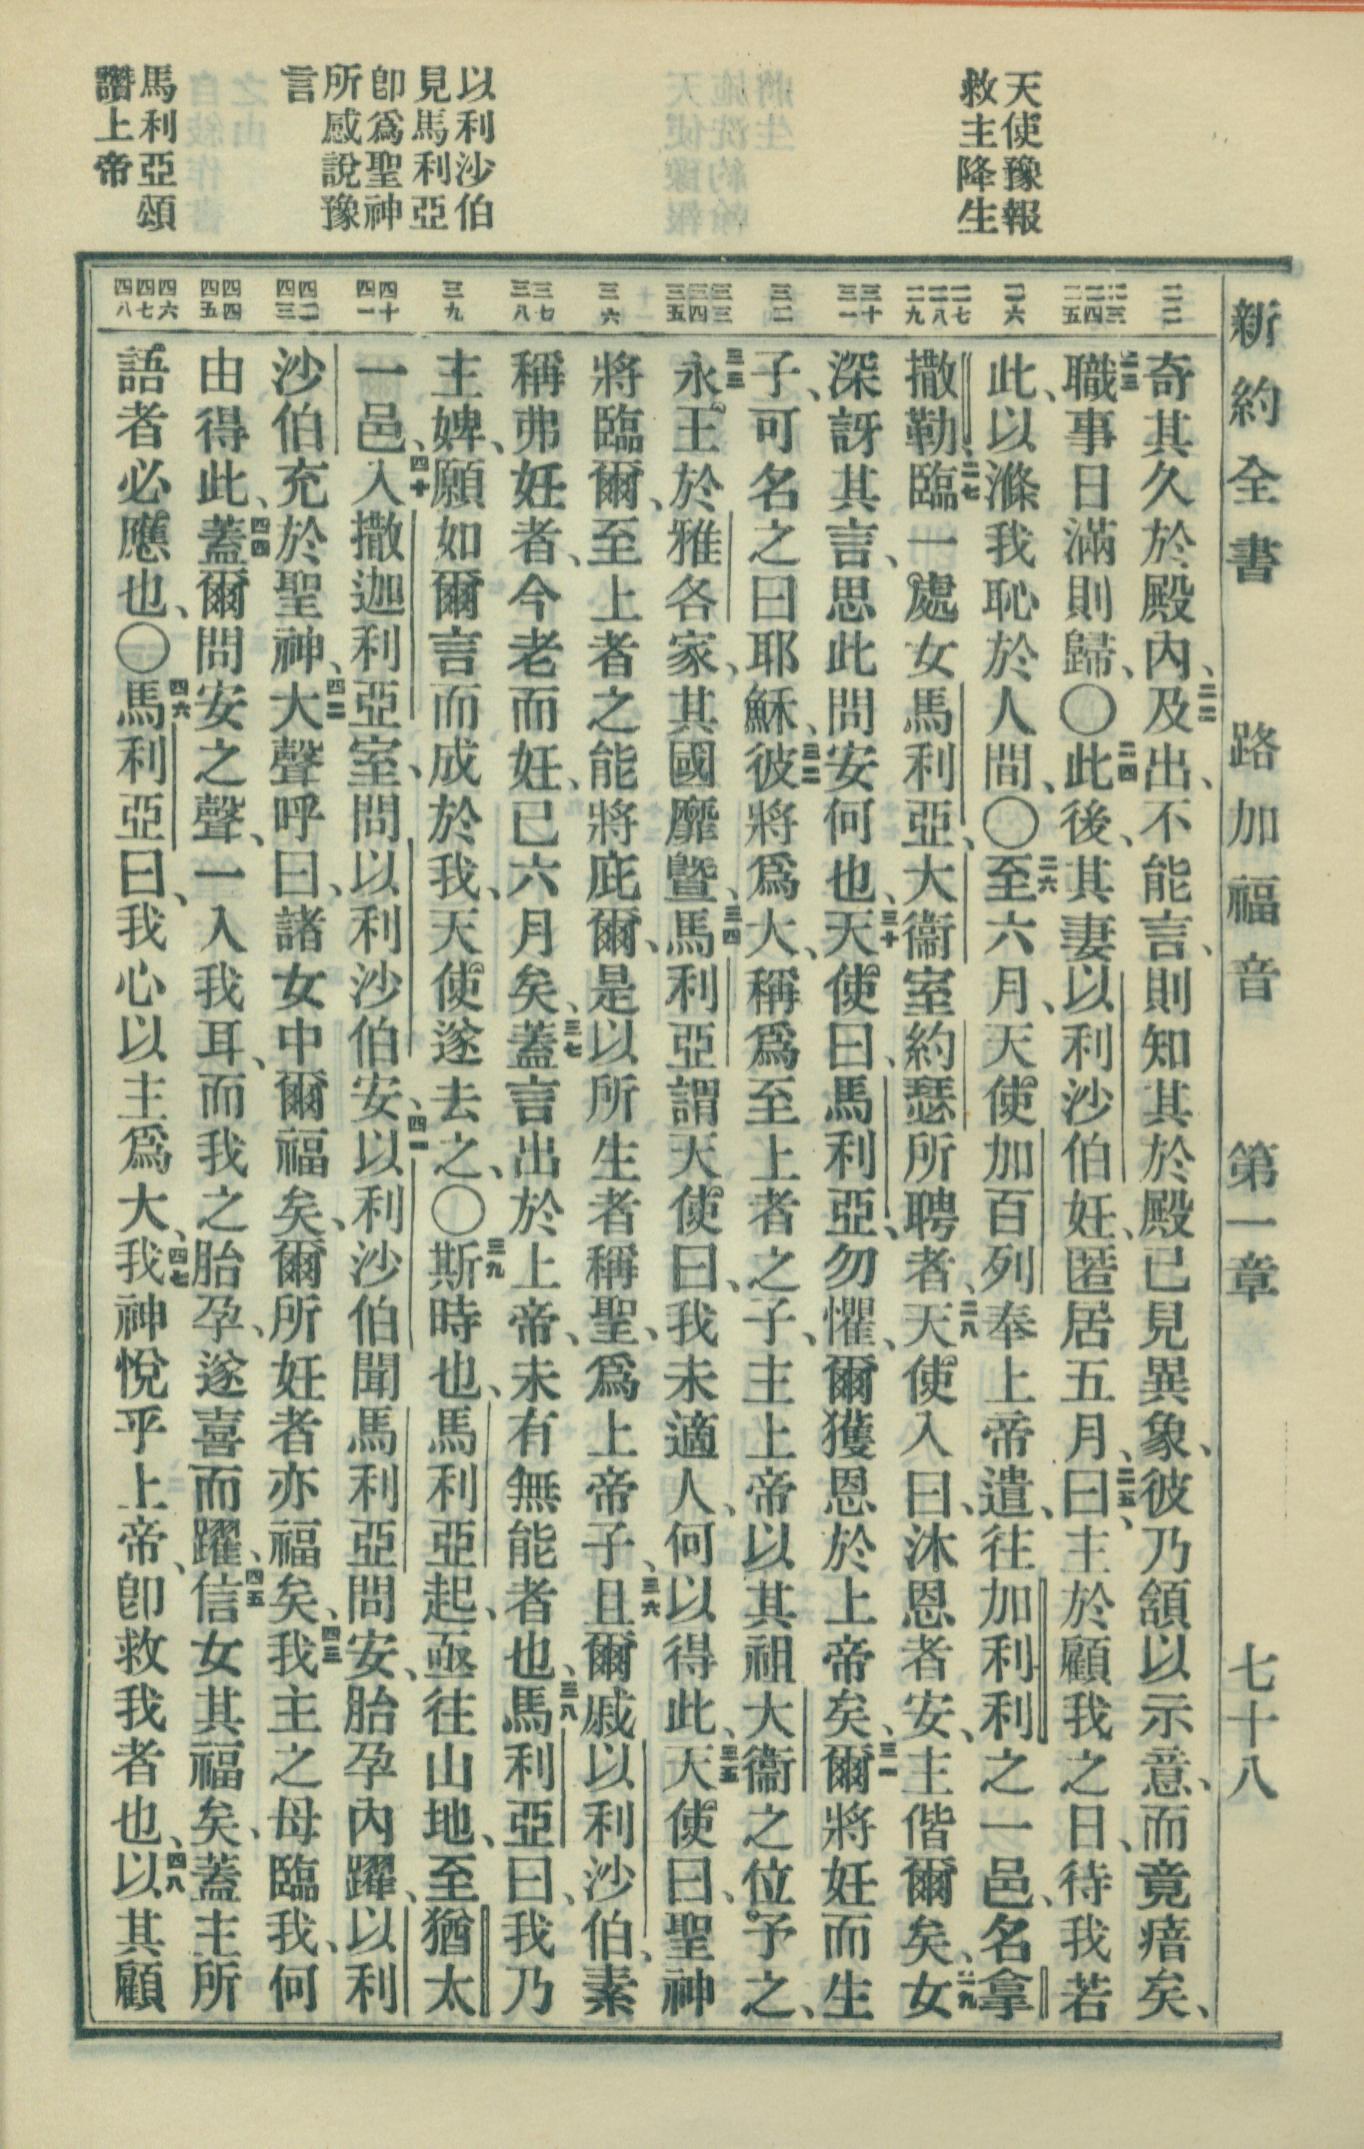 新約全書　路加福音　第一章　七十八
天使豫報
救主降生
以利沙伯
見馬利亞
卽爲聖神
所感說豫
言
馬利亞頌
讚上帝
二二
二三 二四 二五
二六
二七 二八 二九
三十 三一
三二
三三 三四 三五
三六
三七 三八
三九
四十 四一
四二 四三
四四 四五
四六 四七 四八
奇其久於殿內、二二及出、不能言、則知其於殿已見異象、彼乃頷以示意、而竟瘖矣、
二三職事日滿則歸、〇二四此後、其妻以利沙伯妊、匿居五月、二五曰、主於顧我之日、待我若
此、以滌我恥於人間、〇二六至六月、天使加百列奉上帝遣、往加利利之一邑、名拿
撒勒、二七臨一處女馬利亞、大衞室約瑟所聘者、二八天使入曰、沐恩者安、主偕爾矣、二九女
深訝其言、思此問安何也、三十天使曰、馬利亞、勿懼、爾獲恩於上帝矣、三一爾將妊而生
子、可名之曰耶穌、三二彼將爲大、稱爲至上者之子、主上帝以其祖大衞之位予之、
三三永王於雅各家、其國靡曁、三四馬利亞謂天使曰、我未適人、何以得此、三五天使曰、聖神
將臨爾、至上者之能將庇爾、是以所生者稱聖、爲上帝子、三六且爾戚以利沙伯、素
稱弗妊者、今老而妊、已六月矣、三七蓋言出於上帝、未有無能者也、三八馬利亞曰、我乃
主婢、願如爾言而成於我、天使遂去之、〇三九斯時也、馬利亞起、亟往山地、至猶太
一邑、四十入撒迦利亞室、問以利沙伯安、四一以利沙伯聞馬利亞問安、胎孕內躍、以利
沙伯充於聖神、四二大聲呼曰、諸女中爾福矣、爾所妊者亦福矣、四三我主之母臨我、何
由得此、四四蓋爾問安之聲、一入我耳、而我之胎孕、遂喜而躍、四五信女其福矣、蓋主所
語者必應也、〇四六馬利亞曰、我心以主爲大、四七我神悅乎上帝、卽救我者也、四八以其顧